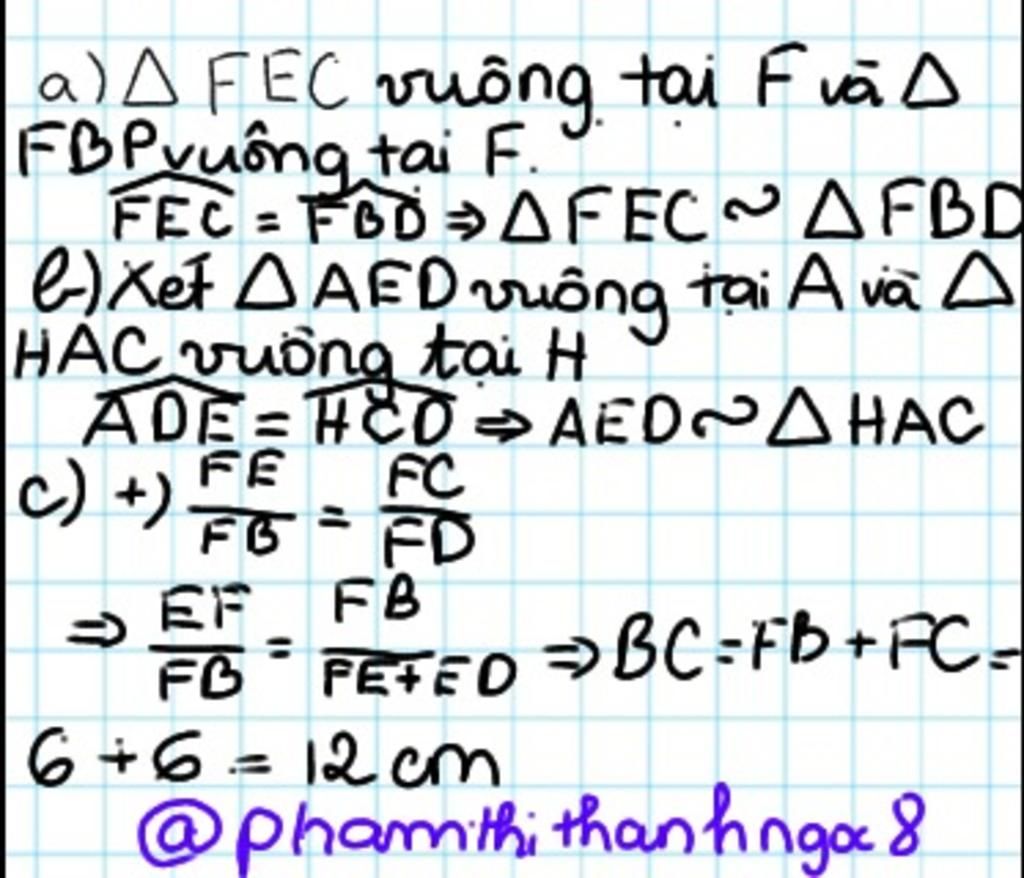 a) △ FEC vuông tại F và △
FBP vuông tai F.
FEC = FBD ⇒ △ FEC ~ △ FBD
b) Xét △ AED vuông tại A và △
HAC vuông tại H
ADE = HCD ⇒ AED ~ △ HAC
c) +) FE/FB = FC/FD
⇒ EF/FB = FB/FE+ED ⇒ BC = FB + FC =
6 + 6 = 12 cm
@phamthithanhngoc8